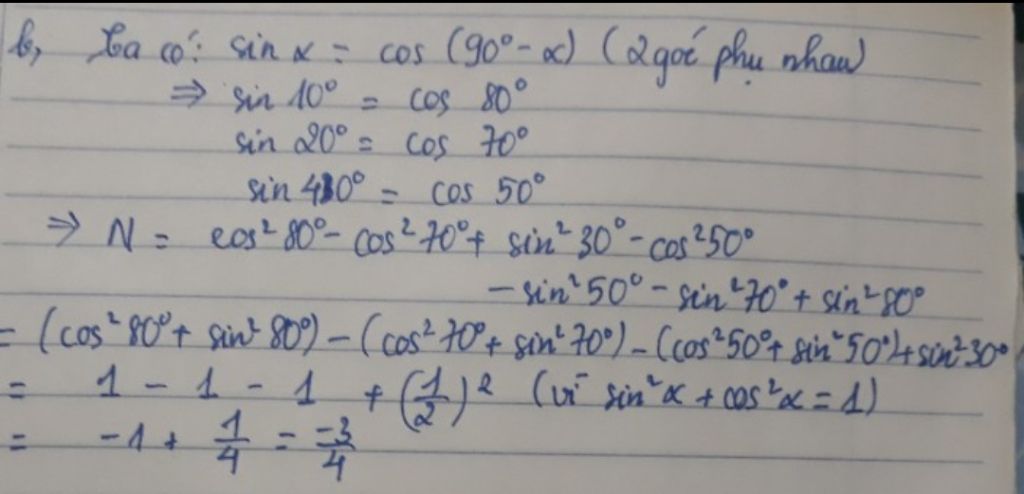 b, Ta có: sin α = cos (90° - α) (2 góc phụ nhau)
⇒ sin 10° = cos 80°
sin 20° = cos 70°
sin 40° = cos 50°
⇒ N = cos² 80° - cos² 70° + sin² 30° - cos² 50°
- sin² 50° - sin² 70° + sin² 80°
= (cos² 80° + sin² 80°) - (cos² 70° + sin² 70°) - (cos² 50° + sin² 50°) + sin² 30°
= 1 - 1 - 1 + (1/2)² (vì sin² α + cos² α = 1)
= -1 + 1/4 = -3/4